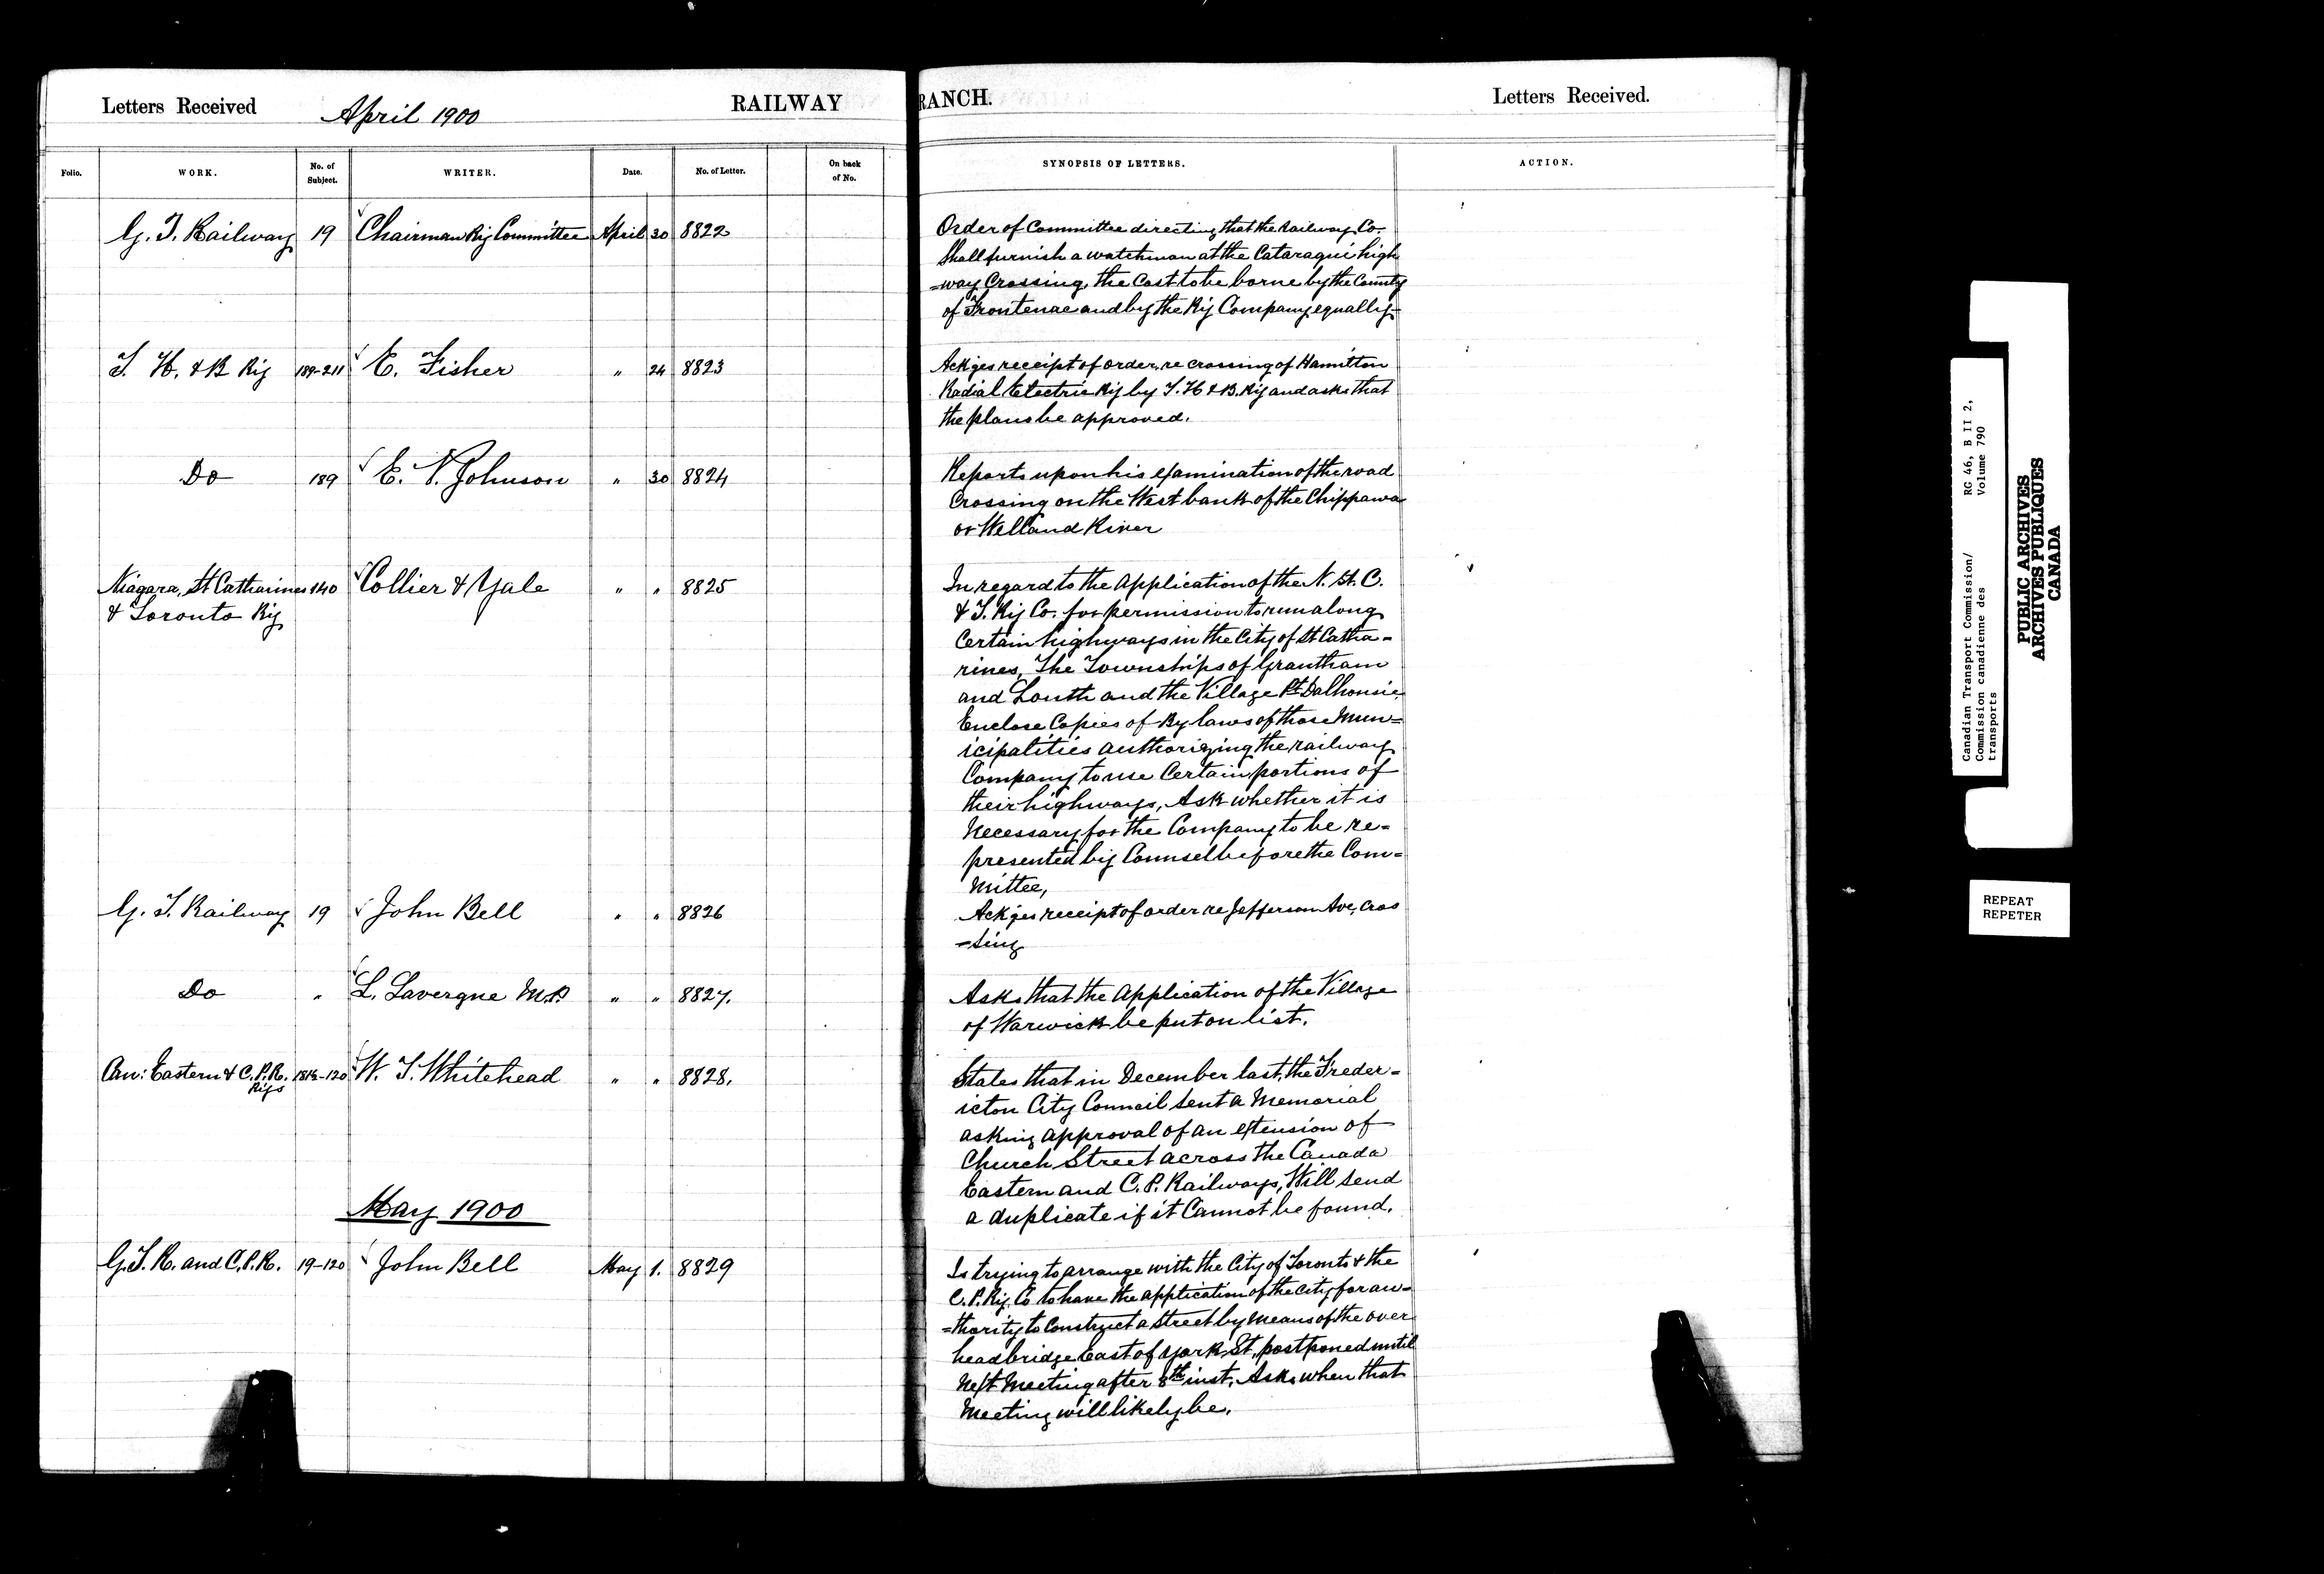 Letters Received April 1900 RAILWAY BRANCH. Letters Received.
Folio. WORK. No. of Subject. WRITER. Date. No. of Letter. On back of No. SYNOPSIS OF LETTERS. ACTION.
G. T. Railway 19 Chairman Ry Committee April 30 8822
Order of Committee directing that the Railway Co.
Shall furnish a watchman at the Cataraqui high
=way Crossing, the Cost to be borne by the County
of Frontenac and by the Ry Company equally.
T. H. & B Ry 189-211 E. Fisher " 24 8823
Ackges receipt of order re crossing of Hamilton
Radial Electric Ry by T. H & B. Ry and asks that
the plans be approved.
Do 189 E. V. Johnson " 30 8824
Reports upon his examination of the road
Crossing on the West bank of the Chippawa
or Welland River
Niagara, St Catharines 140 Collier & Yale " " 8825
& Toronto Ry
In regard to the Application of the N. St. C.
& T. Ry Co. for permission to run along
Certain highways in the City of St Catha-
rines, The Townships of Grantham
and Louth and the Village Pt Dalhousie.
Enclose Copies of By laws of those Mun=
icipalities authorizing the railway
Company to use Certain portions of
their highways, Ask whether it is
Necessary for the Company to be re=
presented by Counsel before the Com=
mittee,
G. T. Railway 19 John Bell " " 8826
Ackges receipt of order re Jefferson Ave, Cros
=sing
Do " L. Lavergne M.P " " 8827.
Asks that the Application of the Village
of Warwick be put on list.
Can: Eastern & C. P. R. Rys -120 W. T. Whitehead " " 8828.
States that in December last, the Freder=
icton City Council sent a Memorial
asking approval of an extension of
Church Street across the Canada
Eastern and C. P. Railways, Will send
a duplicate if it Cannot be found.
May 1900
G. T. R. and C. P. R. 19-120 John Bell May 1. 8829
Is trying to arrange with the City of Toronto & the
C. P. Ry. Co to have the application of the City for au=
=thority to Construct a Street by Means of the over
head bridge East of York St. postponed until
Next Meeting after 8th inst. Asks when that
Meeting will likely be.
Canadian Transport Commission/ RG 46, B II 2,
Commission canadienne des Volume 790
transports
PUBLIC ARCHIVES
ARCHIVES PUBLIQUES
CANADA
REPEAT
REPETER